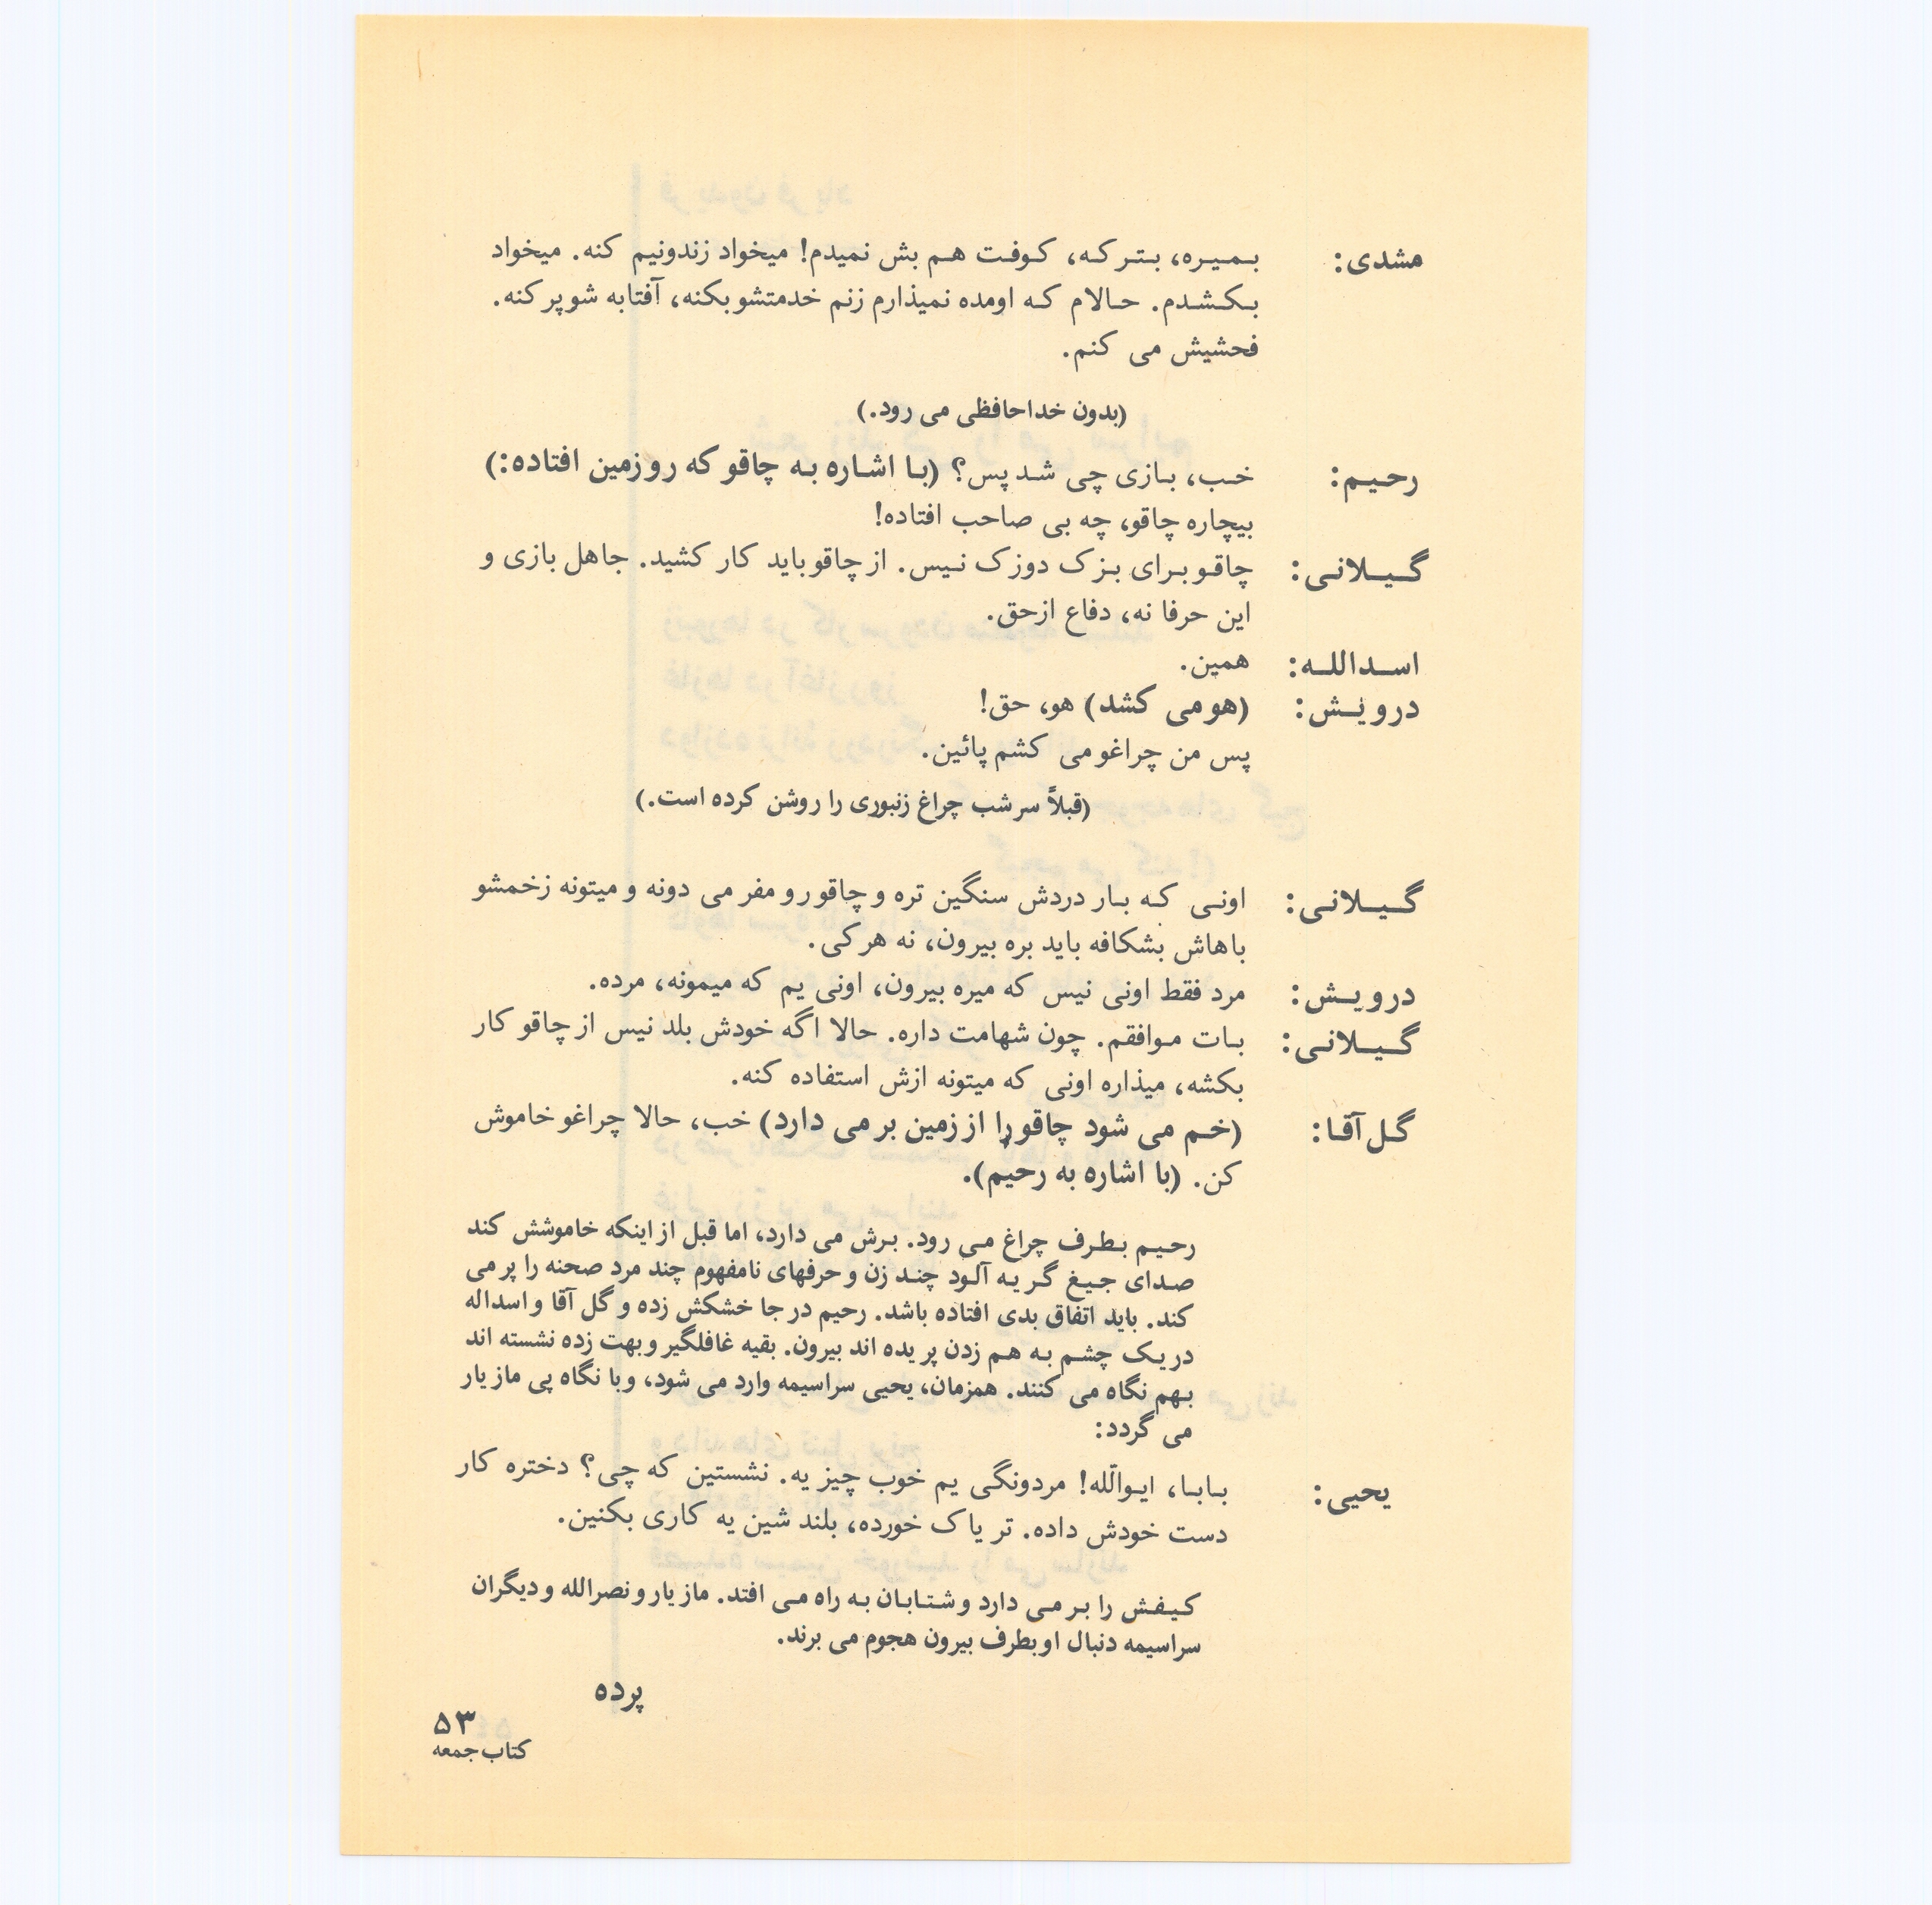 مشدی: بمیره، بترکه، کوفت هم بش نمیدم! میخواد زندونیم کنه. میخواد
بکشدم. حالام که اومده نمیذارم زنم خدمتشو بکنه، آفتابه شو پر کنه.
فحشیش می کنم.
(بدون خداحافظی می رود.)
رحیم: خب، بازی چی شد پس؟ (با اشاره به چاقو که رو زمین افتاده:)
بیچاره چاقو، چه بی صاحب افتاده!
گیلانی: چاقو برای بزک دوزک نیس. از چاقو باید کار کشید. جاهل بازی و
این حرفا نه، دفاع ازحق.
اسدالله: همین.
درویش: (هو می کشد) هو، حق!
پس من چراغو می کشم پائین.
(قبلاً سر شب چراغ زنبوری را روشن کرده است.)
گیلانی: اونی که بار دردش سنگین تره و چاقو رو مفر می دونه و میتونه زخمشو
باهاش بشکافه باید بره بیرون، نه هر کی.
درویش: مرد فقط اونی نیس که میره بیرون، اونی یم که میمونه، مرده.
گیلانی: بات موافقم. چون شهامت داره. حالا اگه خودش بلد نیس از چاقو کار
بکشه، میذاره اونی که میتونه ازش استفاده کنه.
گل آقا: (خم می شود چاقو را از زمین بر می دارد) خب، حالا چراغو خاموش
کن. (با اشاره به رحیم).
رحیم بطرف چراغ می رود. برش می دارد، اما قبل از اینکه خاموشش کند
صدای جیغ گریه آلود چند زن و حرفهای نامفهوم چند مرد صحنه را پر می
کند. باید اتفاق بدی افتاده باشد. رحیم در جا خشکش زده و گل آقا و اسداله
در یک چشم به هم زدن پریده اند بیرون. بقیه غافلگیر و بهت زده نشسته اند
بهم نگاه می کنند. همزمان، یحیی سراسیمه وارد می شود، و با نگاه پی مازیار
می گردد:
یحیی: بابا، ایوالّله! مردونگی یم خوب چیزیه. نشستین که چی؟ دختره کار
دست خودش داده. تریاک خورده، بلند شین یه کاری بکنین.
کیفش را بر می دارد و شتابان به راه می افتد. مازیار و نصرالله و دیگران
سراسیمه دنبال او بطرف بیرون هجوم می برند.
پرده
۵۳
کتاب جمعه